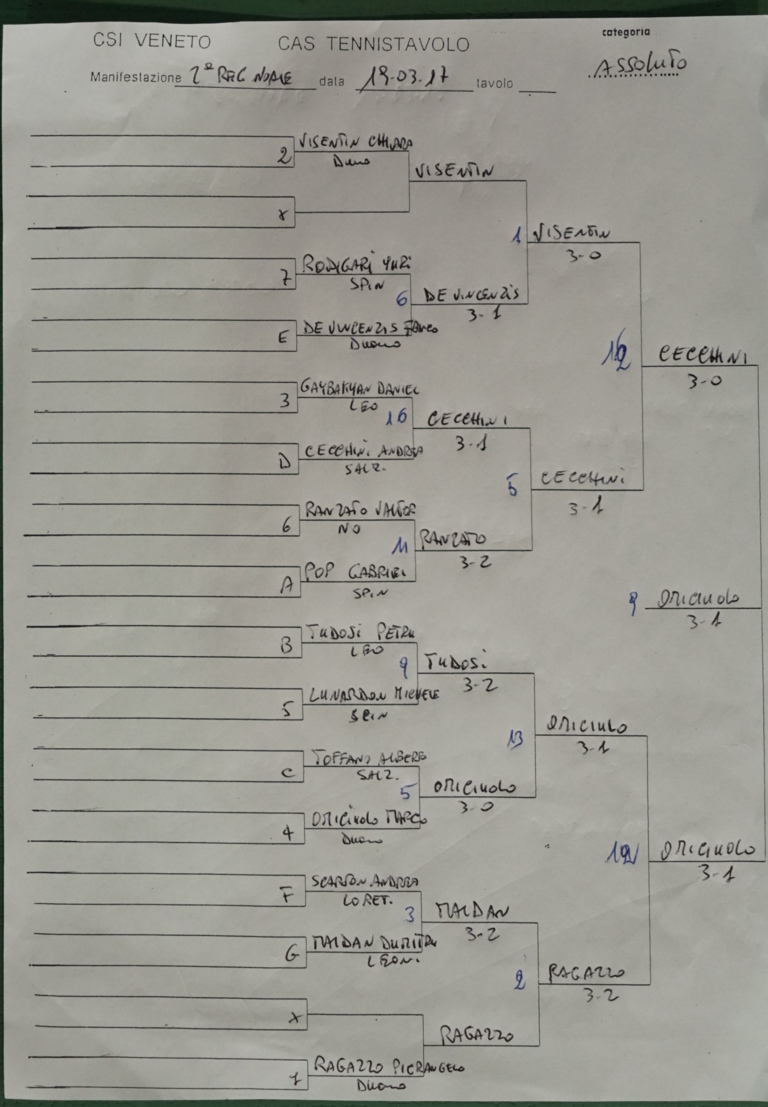 CSI VENETO CAS TENNISTAVOLO categoria
Manifestazione 2ª REG NOALE data 19.03.17 tavolo ASSOLUTO
2 VISENTIN CHIARA
VISENTIN
X
1 VISENTIN
3-0
7 RODIGARI YURI
SPIN
6 DE VINCENZIS
3-1
E DE VINCENZIS
Duomo
CECCHINI
3-0
3 GAYBAKYAN DANIEL
LEO
16 CECCHINI
3-1
D CECCHINI ANDREA
SALZ.
5 CECCHINI
3-1
6 RANZATO VALTER
NO
11 RANZATO
3-2
A POP GABRIEL
SPIN
9 ORICIUOLO
3-1
B TUDOSI PETRU
LEO
9 TUDOSI
3-2
5 LUNARDON MICHELE
SPIN
13 ORICIUOLO
3-1
C TOFFANO ALBERTO
SALZ.
5 ORICIUOLO
3-0
4 ORICIUOLO MARCO
Duomo
ORICIUOLO
3-1
F SCARTON ANDREA
LORET.
3 MALDAN
3-2
G MALDAN DUMITRU
LEON.
2 RAGAZZO
3-2
X
RAGAZZO
1 RAGAZZO PIERANGELO
Duomo